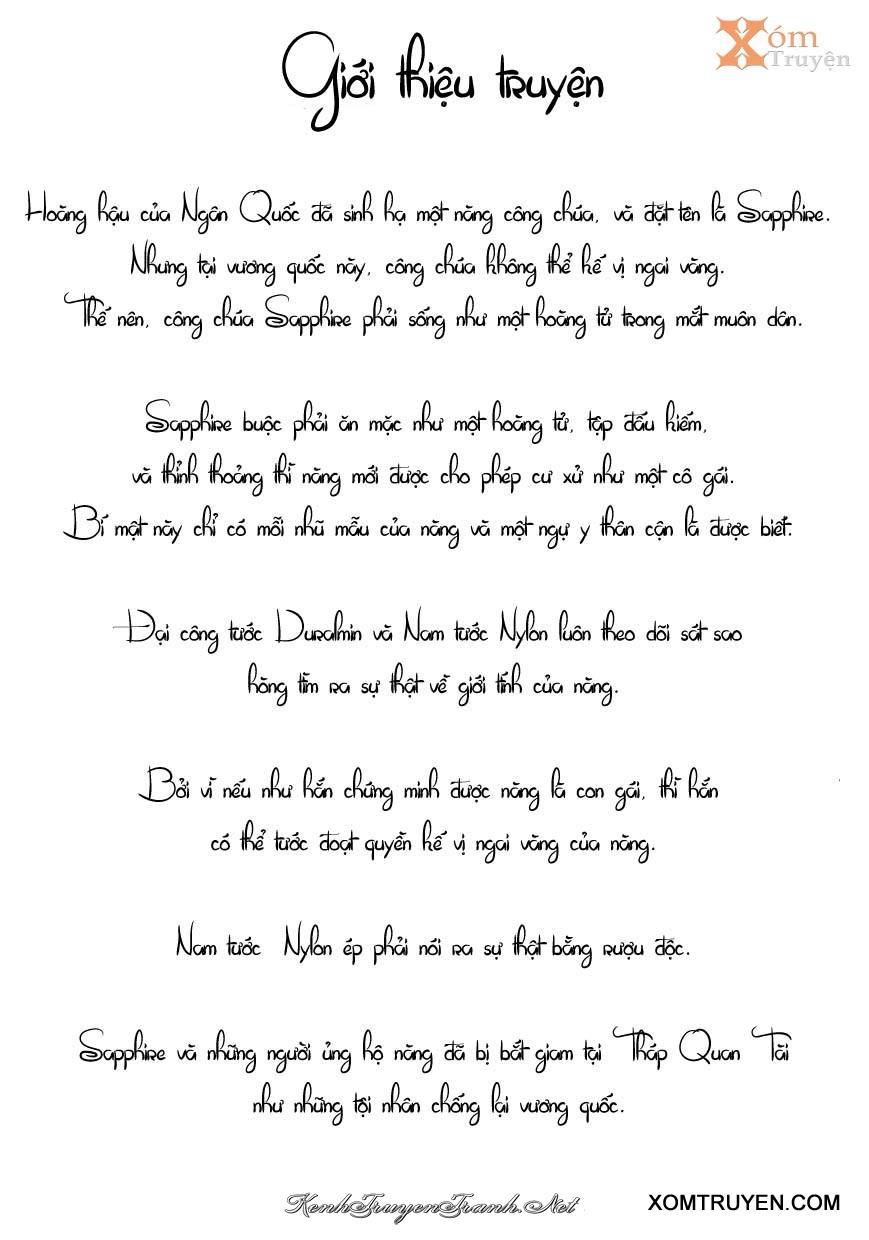 Xóm
Truyện
Giới thiệu truyện
Hoàng hậu của Ngân Quốc đã sinh hạ một nàng công chúa, và đặt tên là Sapphire.
Nhưng tại vương quốc này, công chúa không thể kế vị ngai vàng.
Thế nên, công chúa Sapphire phải sống như một hoàng tử trong mắt muôn dân.
Sapphire buộc phải ăn mặc như một hoàng tử, tập đấu kiếm,
và thỉnh thoảng thì nàng mới được cho phép cư xử như một cô gái.
Bí mật này chỉ có mỗi nhũ mẫu của nàng và một ngự y thân cận là được biết.
Đại công tước Duralmin và Nam tước Nylon luôn theo dõi sát sao
hòng tìm ra sự thật về giới tính của nàng.
Bởi vì nếu như hắn chứng minh được nàng là con gái, thì hắn
có thể tước đoạt quyền kế vị ngai vàng của nàng.
Nam tước Nylon ép phải nói ra sự thật bằng rượu độc.
Sapphire và những người ủng hộ nàng đã bị bắt giam tại Tháp Quan Tài
như những tội nhân chống lại vương quốc.
KenhTruyenTranh.Net
XOMTRUYEN.COM